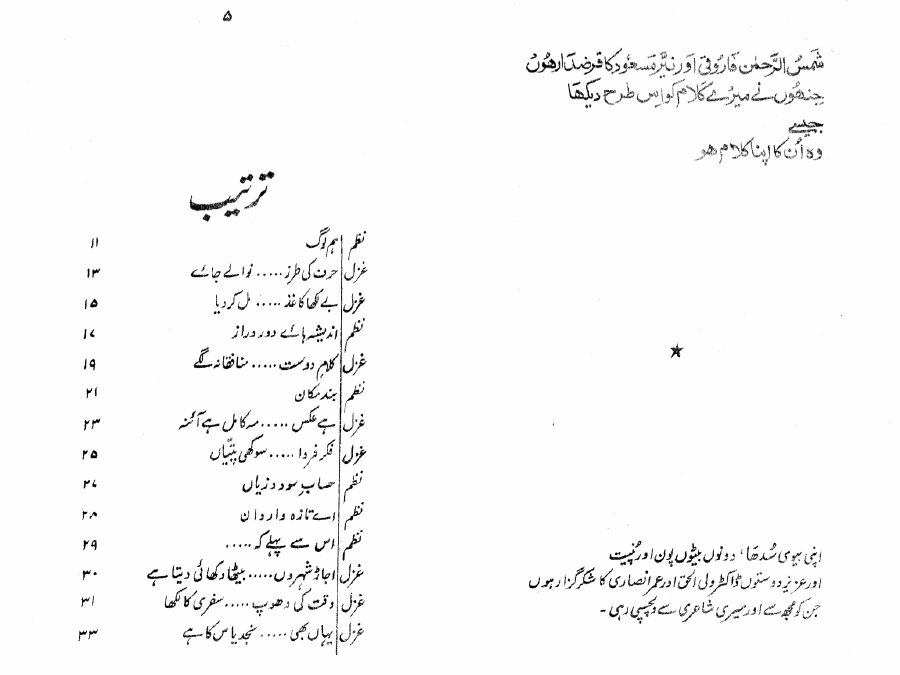 شمسُ الرَّحمٰن فاروقی اور نیّر مسعُود کا قرضدار ھُوں
جنھُوں نے میرے کلام کو اِس طرح دیکھا
جیسے
وہ اُن کا اپنا کلام ھو
★
اپنی بیوی سُدھا، دونوں بیٹوں پون اور پُنیت
اور عزیز دوستوں ڈاکٹر ولی الحق اور عمر انصاری کا شکر گزار ہوں
جن کو مجھ سے اور میری شاعری سے دلچسپی رہی۔
۵
ترتیب
نظم ہم لوگ ۱۱
غزل حرف کی طرز ..... نوالے جائے ۱۳
غزل بے لکھا کاغذ ..... مل کر دیا ۱۵
نظم اندیشہ ہائے دور دراز ۱۷
غزل کلامِ دوست ..... منافقانہ لگے ۱۹
نظم بند مکان ۲۱
غزل ہے عکس ..... مہ کامل ہے آئنہ ۲۳
غزل فکر فردا ..... سوکھی پتّیاں ۲۵
نظم حسابِ سود و زیاں ۲۷
نظم اے تازہ واردان ۲۸
نظم اس سے پہلے کہ ..... ۲۹
غزل اجاڑ شہروں ..... بیٹھا دکھائی دیتا ہے ۳۰
غزل وقت کی دھوپ ..... سفری کا لکھا ۳۱
غزل یہاں بھی ..... یاس کا ہے ۳۳